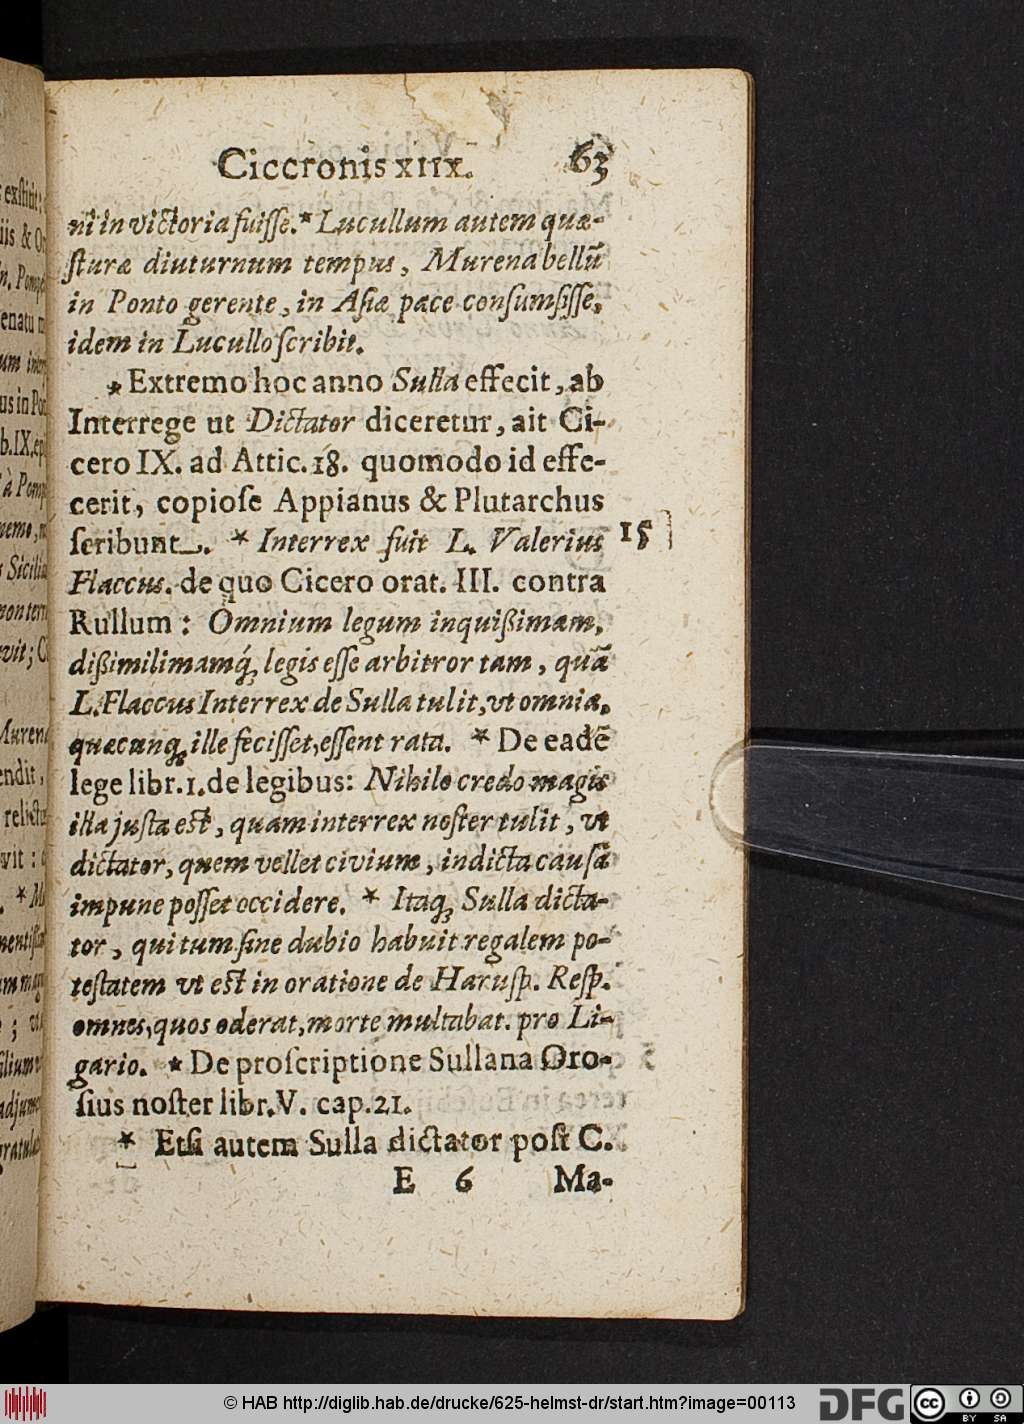 Ciceronis xiix. 63
ni in victoria fuiſſe. * Lucullum autem quæ-
ſturæ diuturnum tempus, Murena bellũ
in Ponto gerente, in Aſiæ pace conſumſiſſe,
idem in Lucullo ſcribit.
* Extremo hoc anno Sulla effecit, ab
Interrege ut Dictator diceretur, ait Ci-
cero IX. ad Attic. 18. quomodo id effe-
cerit, copioſe Appianus & Plutarchus
ſcribunt. * Interrex fuit L. Valerius 15
Flaccus. de quo Cicero orat. III. contra
Rullum: Omnium legum inquißimam,
dißimilimamq́; legis eſſe arbitror tam, quã
L. Flaccus Interrex de Sulla tulit, vt omnia,
quæcunq; ille feciſſet, eſſent rata. * De eadẽ
lege libr. 1. de legibus: Nihilo credo magis
illa juſta eſt, quam interrex noſter tulit, vt
dictator, quem vellet civium, indicta cauſã
impune poſſet occidere. * Itaq; Sulla dicta-
tor, qui tum ſine dubio habuit regalem po-
teſtatem vt eſt in oratione de Haruſp. Reſp.
omnes, quos oderat, morte multabat. pro Li-
gario. * De proſcriptione Sullana Oro-
ſius noſter libr. V. cap. 21.
* Etſi autem Sulla dictator poſt C.
E 6 Ma-
© HAB http://diglib.hab.de/drucke/625-helmst-dr/start.htm?image=00113
DFG
cc BY SA